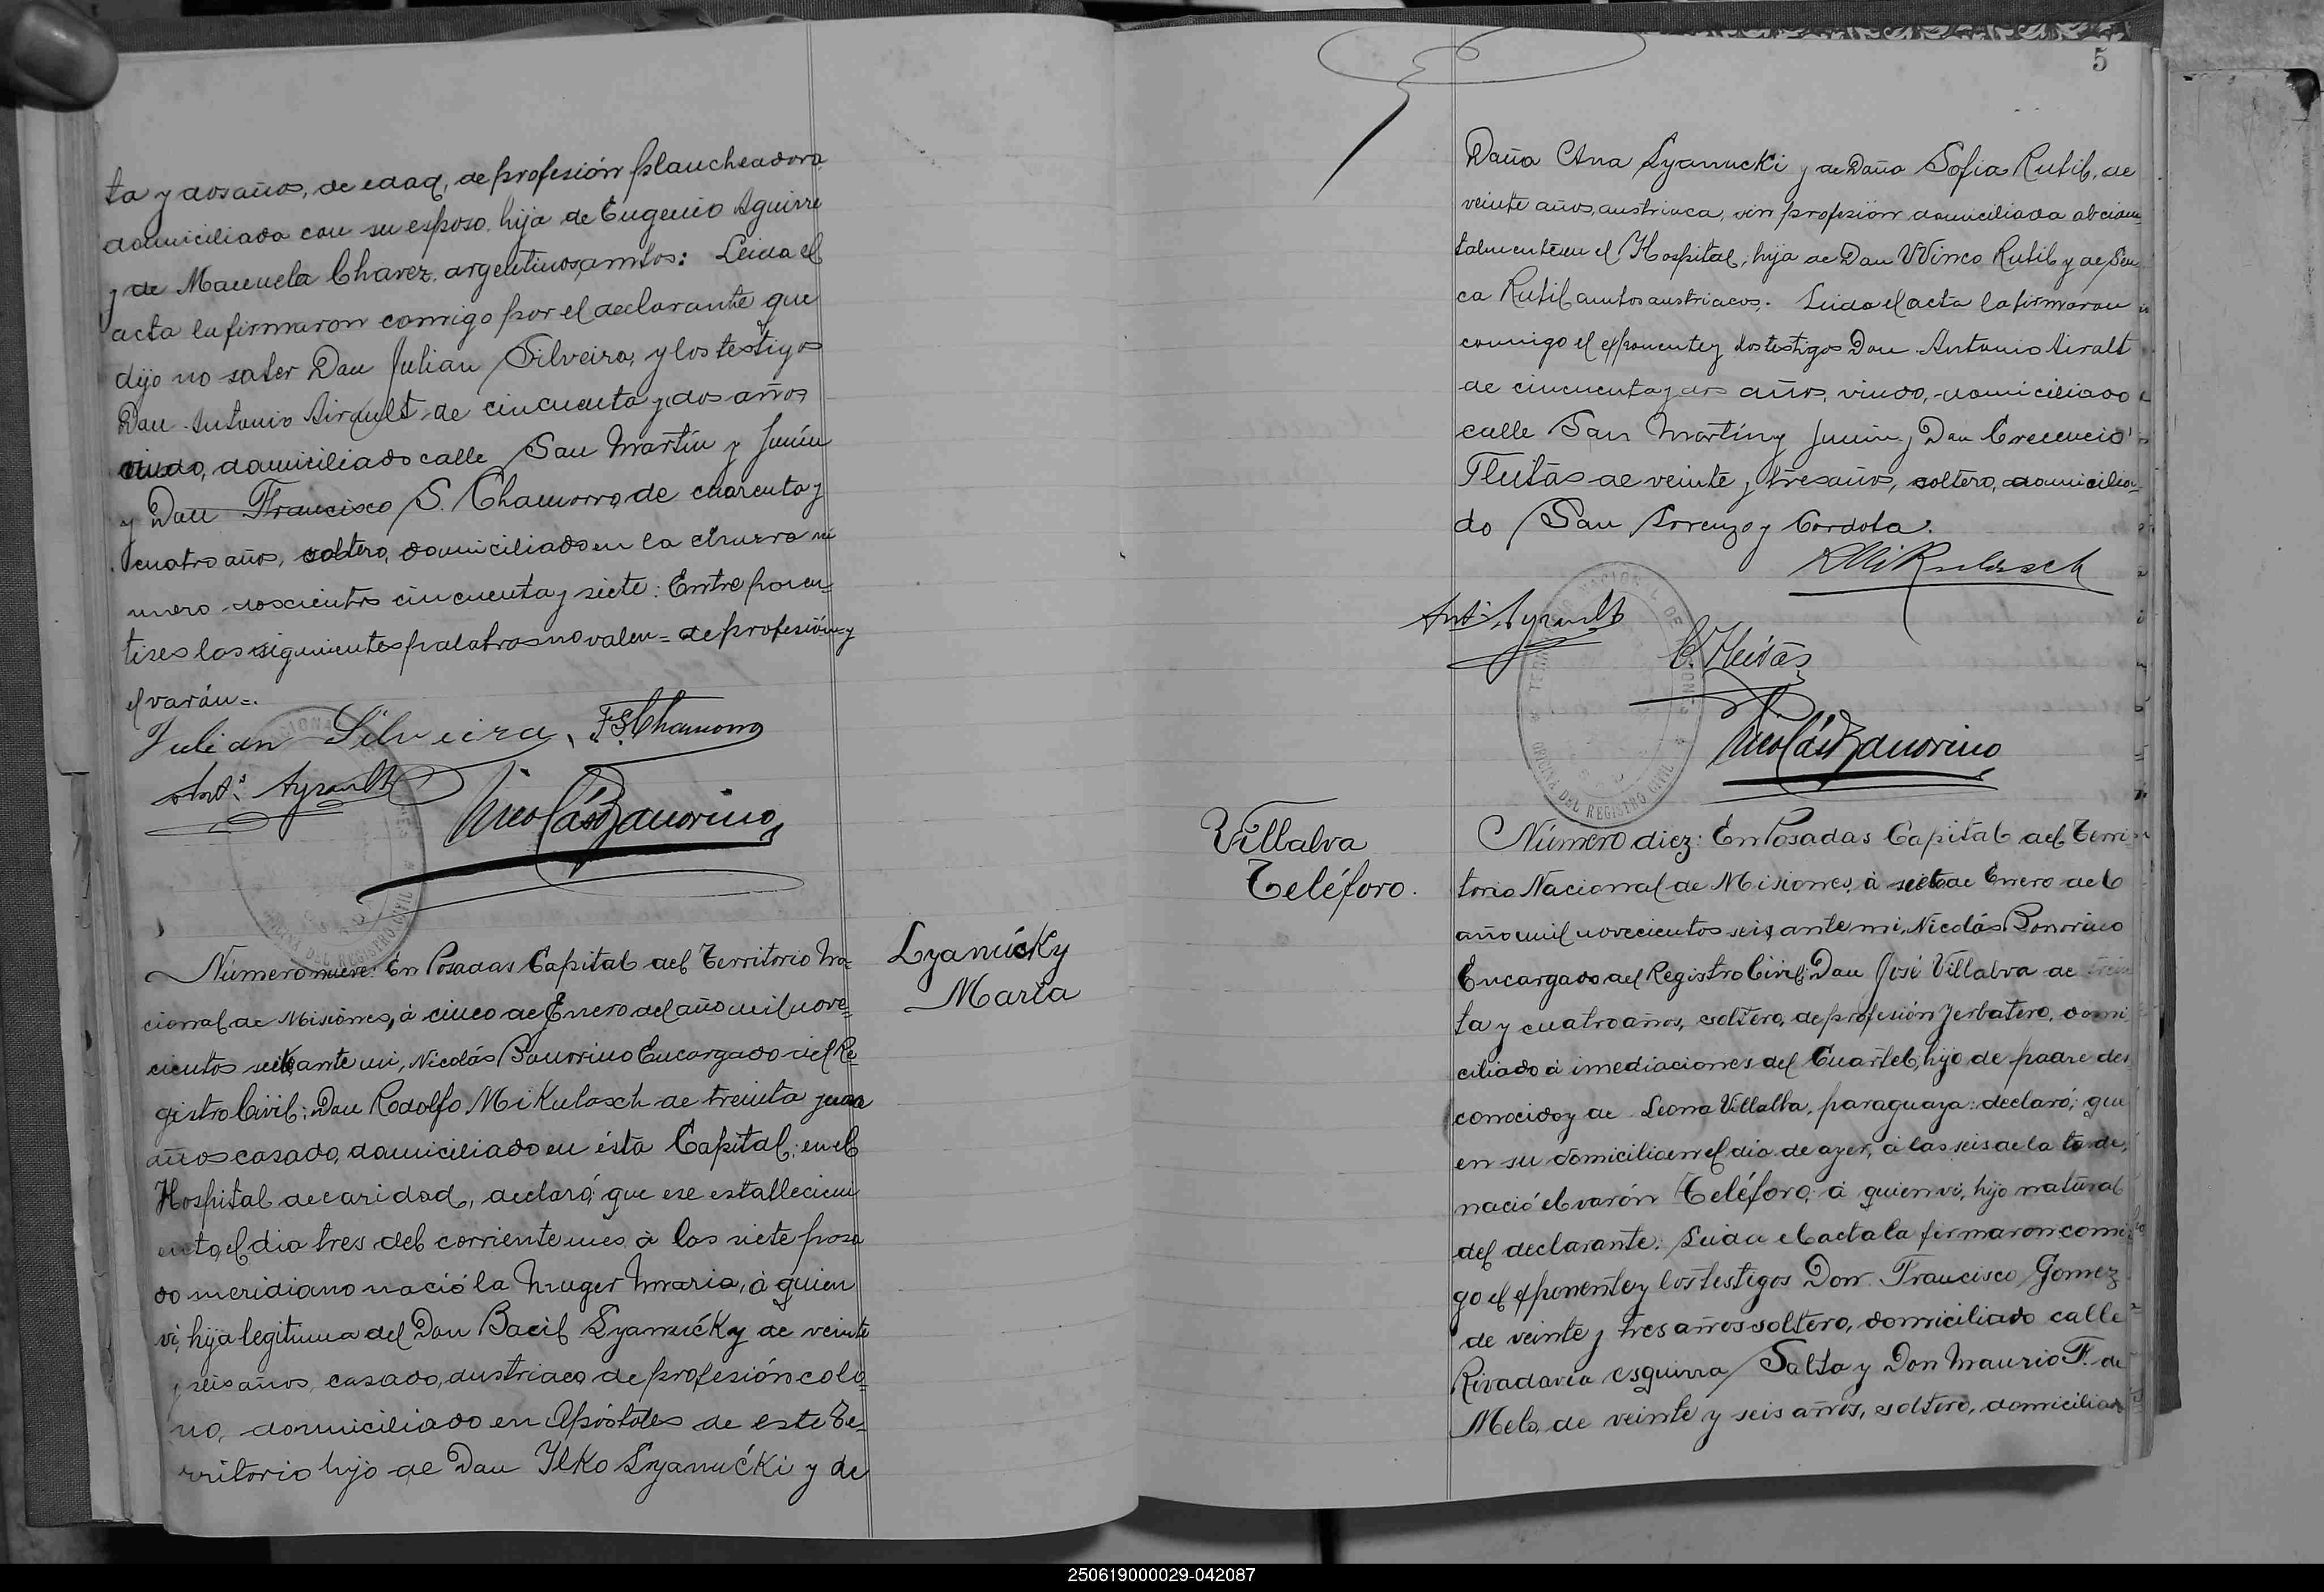 ta y dos años, de edad, de profesión plancheadora
domiciliada con su esposo, hija de Eugenio Aguirre
y de Manuela Chavez, argentinos, ambos: Leida el
acta la firmaron comigo por el declarante que
dijo no saber Don Julian Silveira, y los testigos
Don Antonio Airault de cincuenta y dos años
viudo, domiciliado calle San Martín y Junín
y Don Francisco S. Chamorro, de cuarenta y
cuatro años, soltero, domiciliado en la chacra nú
mero doscientos cincuenta y siete: Entre paren-
tises las siguientes palabras no valen = de profesión = y
el varón =.
Julian Silveira, F. S. Chamorro
Ant. Ayrault
Nicolás Bonorino
Número nueve: En Posadas Capital del Territorio Na-
cional de Misiones, á cinco de Enero del año mil nove-
cientos seis, ante mi, Nicolás Bonorino Encargado del Re-
gistro Civil: Don Rodolfo Mikulasch de treinta y un
años casado, domiciliado en ésta Capital, en el
Hospital de caridad, declaró, que ese establecimi
ento, el dia tres del corriente mes á las siete pasa
do meridiano nació la muger Maria, á quien
vi, hija legitima del Don Bacil Lyanućky de veinte
y seis años, casado, austriaco, de profesión colo-
no, domiciliado en Apóstoles de este Te-
rritorio hijo de Don Ilko Lyanućki y de
Lyanúcky
Maria
5
Doña Ana Lyanucki y de Doña Sofia Rutil, de
veinte años, austriaca, sin profesión domiciliada acciden-
talmente en el Hospital, hija de Don Winco Rutil y de
ca Rutil ambos austriacos. Leida el acta la firmaron
conmigo el exponente y los testigos Don Antonio Airalt
de cincuenta y dos años, viudo, domiciliado
calle San Martín y Junin, y Don Crecencio
Fleitas de veinte y tres años, soltero, domicilia-
do San Lorenzo y Cordoba.
R Mikulasch
Ant. Ayrault
C. Fleitas
Nicolás Bonorino
OFICINA DEL REGISTRO CIVIL
Villalva
Teléforo.
Número diez: En Posadas Capital del Terri-
torio Nacional de Misiones, á siete de Enero del
año mil novecientos seis, ante mi, Nicolás Bonorino
Encargado del Registro Civil: Don José Villalva de trein
ta y cuatro años, soltero, de profesión Yerbatero, domi
ciliado á imediaciones del Cuartel, hijo de padre des
conocido y de Leona Villalba, paraguaya: declaró; que
en su domicilio en el dia de ayer, á las seis de la tarde,
nació el varón Teléforo, á quien vi, hijo natural
del declarante. Leida el acta la firmaron conmi
go el exponente y los testigos Don Francisco Gomez
de veinte y tres años soltero, domiciliado calle
Rivadavia esquina Salta y Don Maurio F. de
Melo, de veinte y seis años, soltero, domiciliado
250619000029-042087